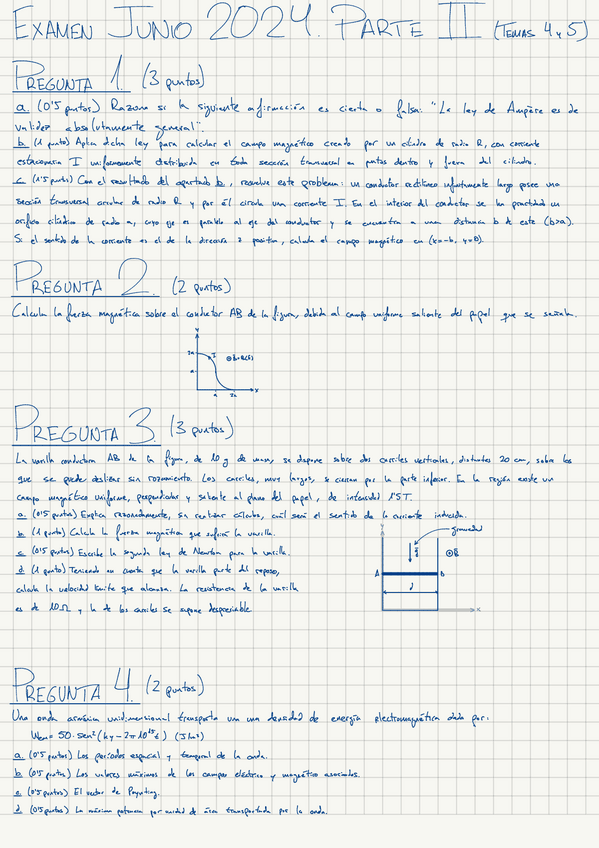 EXAMEN JUNIO 2024. PARTE II (TEMAS 4 y 5)
PREGUNTA 1. (3 puntos)
a. (0'5 puntos) Razona si la siguiente afirmación es cierta o falsa: "La ley de Ampère es de
validez absolutamente general".
b. (1 punto) Aplica dicha ley para calcular el campo magnético creado por un cilindro de radio R, con corriente
estacionaria I uniformemente distribuida en toda sección transversal en puntos dentro y fuera del cilindro.
c. (1'5 puntos) Con el resultado del apartado b, resuelve este problema: un conductor rectilíneo infinitamente largo posee una
sección transversal circular de radio R y por él circula una corriente I. En el interior del conductor se ha practicado un
orificio cilíndrico de radio a, cuyo eje es paralelo al eje del conductor y se encuentra a una distancia b de este (b>a).
Si el sentido de la corriente es el de la dirección z positiva, calcula el campo magnético en (x=-b, y=0).
PREGUNTA 2. (2 puntos)
Calcula la fuerza magnética sobre el conductor AB de la figura, debida al campo uniforme saliente del papel que se señala.
y
2a
I
a
a
2a
x
PREGUNTA 3. (3 puntos)
La varilla conductora AB de la figura, de 10 g de masa, se dispone sobre dos carriles verticales, distantes 20 cm, sobre los
que se puede deslizar sin rozamiento. Los carriles, muy largos, se cierran por la parte inferior. En la región existe un
campo magnético uniforme, perpendicular y saliente al plano del papel, de intensidad 1'5T.
a. (0'5 puntos) Explica razonadamente, sin realizar cálculos, cuál será el sentido de la corriente inducida.
b. (1 punto) Calcula la fuerza magnética que sufrirá la varilla.
c. (0'5 puntos) Escribe la segunda ley de Newton para la varilla.
d. (1 punto) Teniendo en cuenta que la varilla parte del reposo,
calcula la velocidad límite que alcanza. La resistencia de la varilla
es de 10Ω y la de los carriles se supone despreciable.
y
gravedad
A
B
l
x
PREGUNTA 4. (2 puntos)
Una onda armónica unidimensional transporta una densidad de energía electromagnética dada por:
a. (0'5 puntos) Los períodos espacial y temporal de la onda.
b. (0'5 puntos) Los valores máximos de los campos eléctrico y magnético asociados.
c. (0'5 puntos) El vector de Poynting.
d. (0'5 puntos) La máxima potencia por unidad de área transportada por la onda.